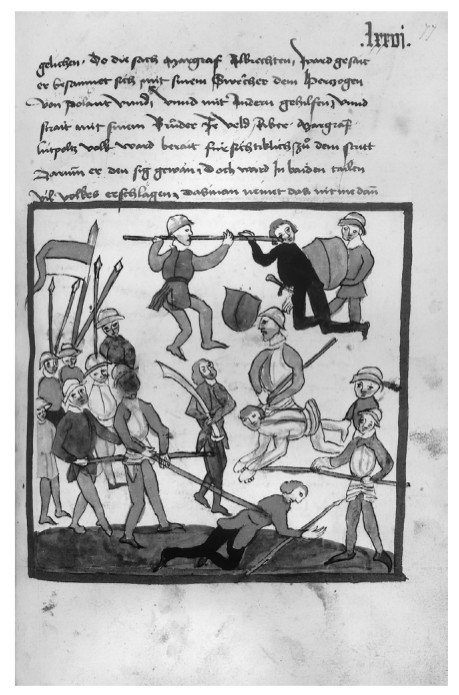 .lxxvi. 77
gelichen. Do die sach Margraf Albrechten, ward gesait
er besamnet sich mit sinem Swecher dem Hertzogen
von polant vnnd mit Andern gehilfen, vnnd
strait mit sinem Brůder ze veld, Aber Margraf
lutpoltz volk ward berait zů dem stritt
Darumb er den sig gewan, doch ward In baiden tailen
vil volkes erschlagen, das man nit me dann